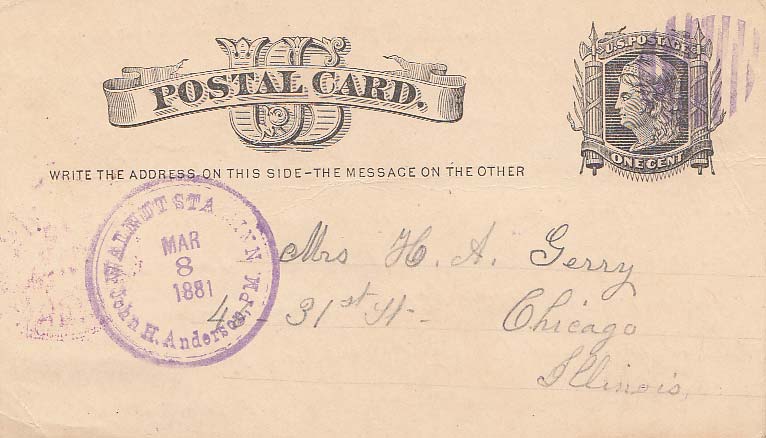 US
POSTAL CARD.
U.S. POSTAGE
ONE CENT
WRITE THE ADDRESS ON THIS SIDE–THE MESSAGE ON THE OTHER
WALNUT STA
MAR
8
1881
John H. Anderson, P.M.
Mrs H. A. Gerry
4 31st St-
Chicago
Illinois